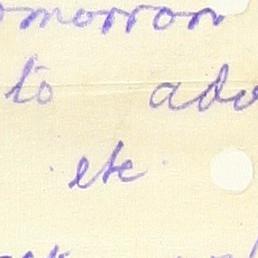 omorrow
to adv
etc